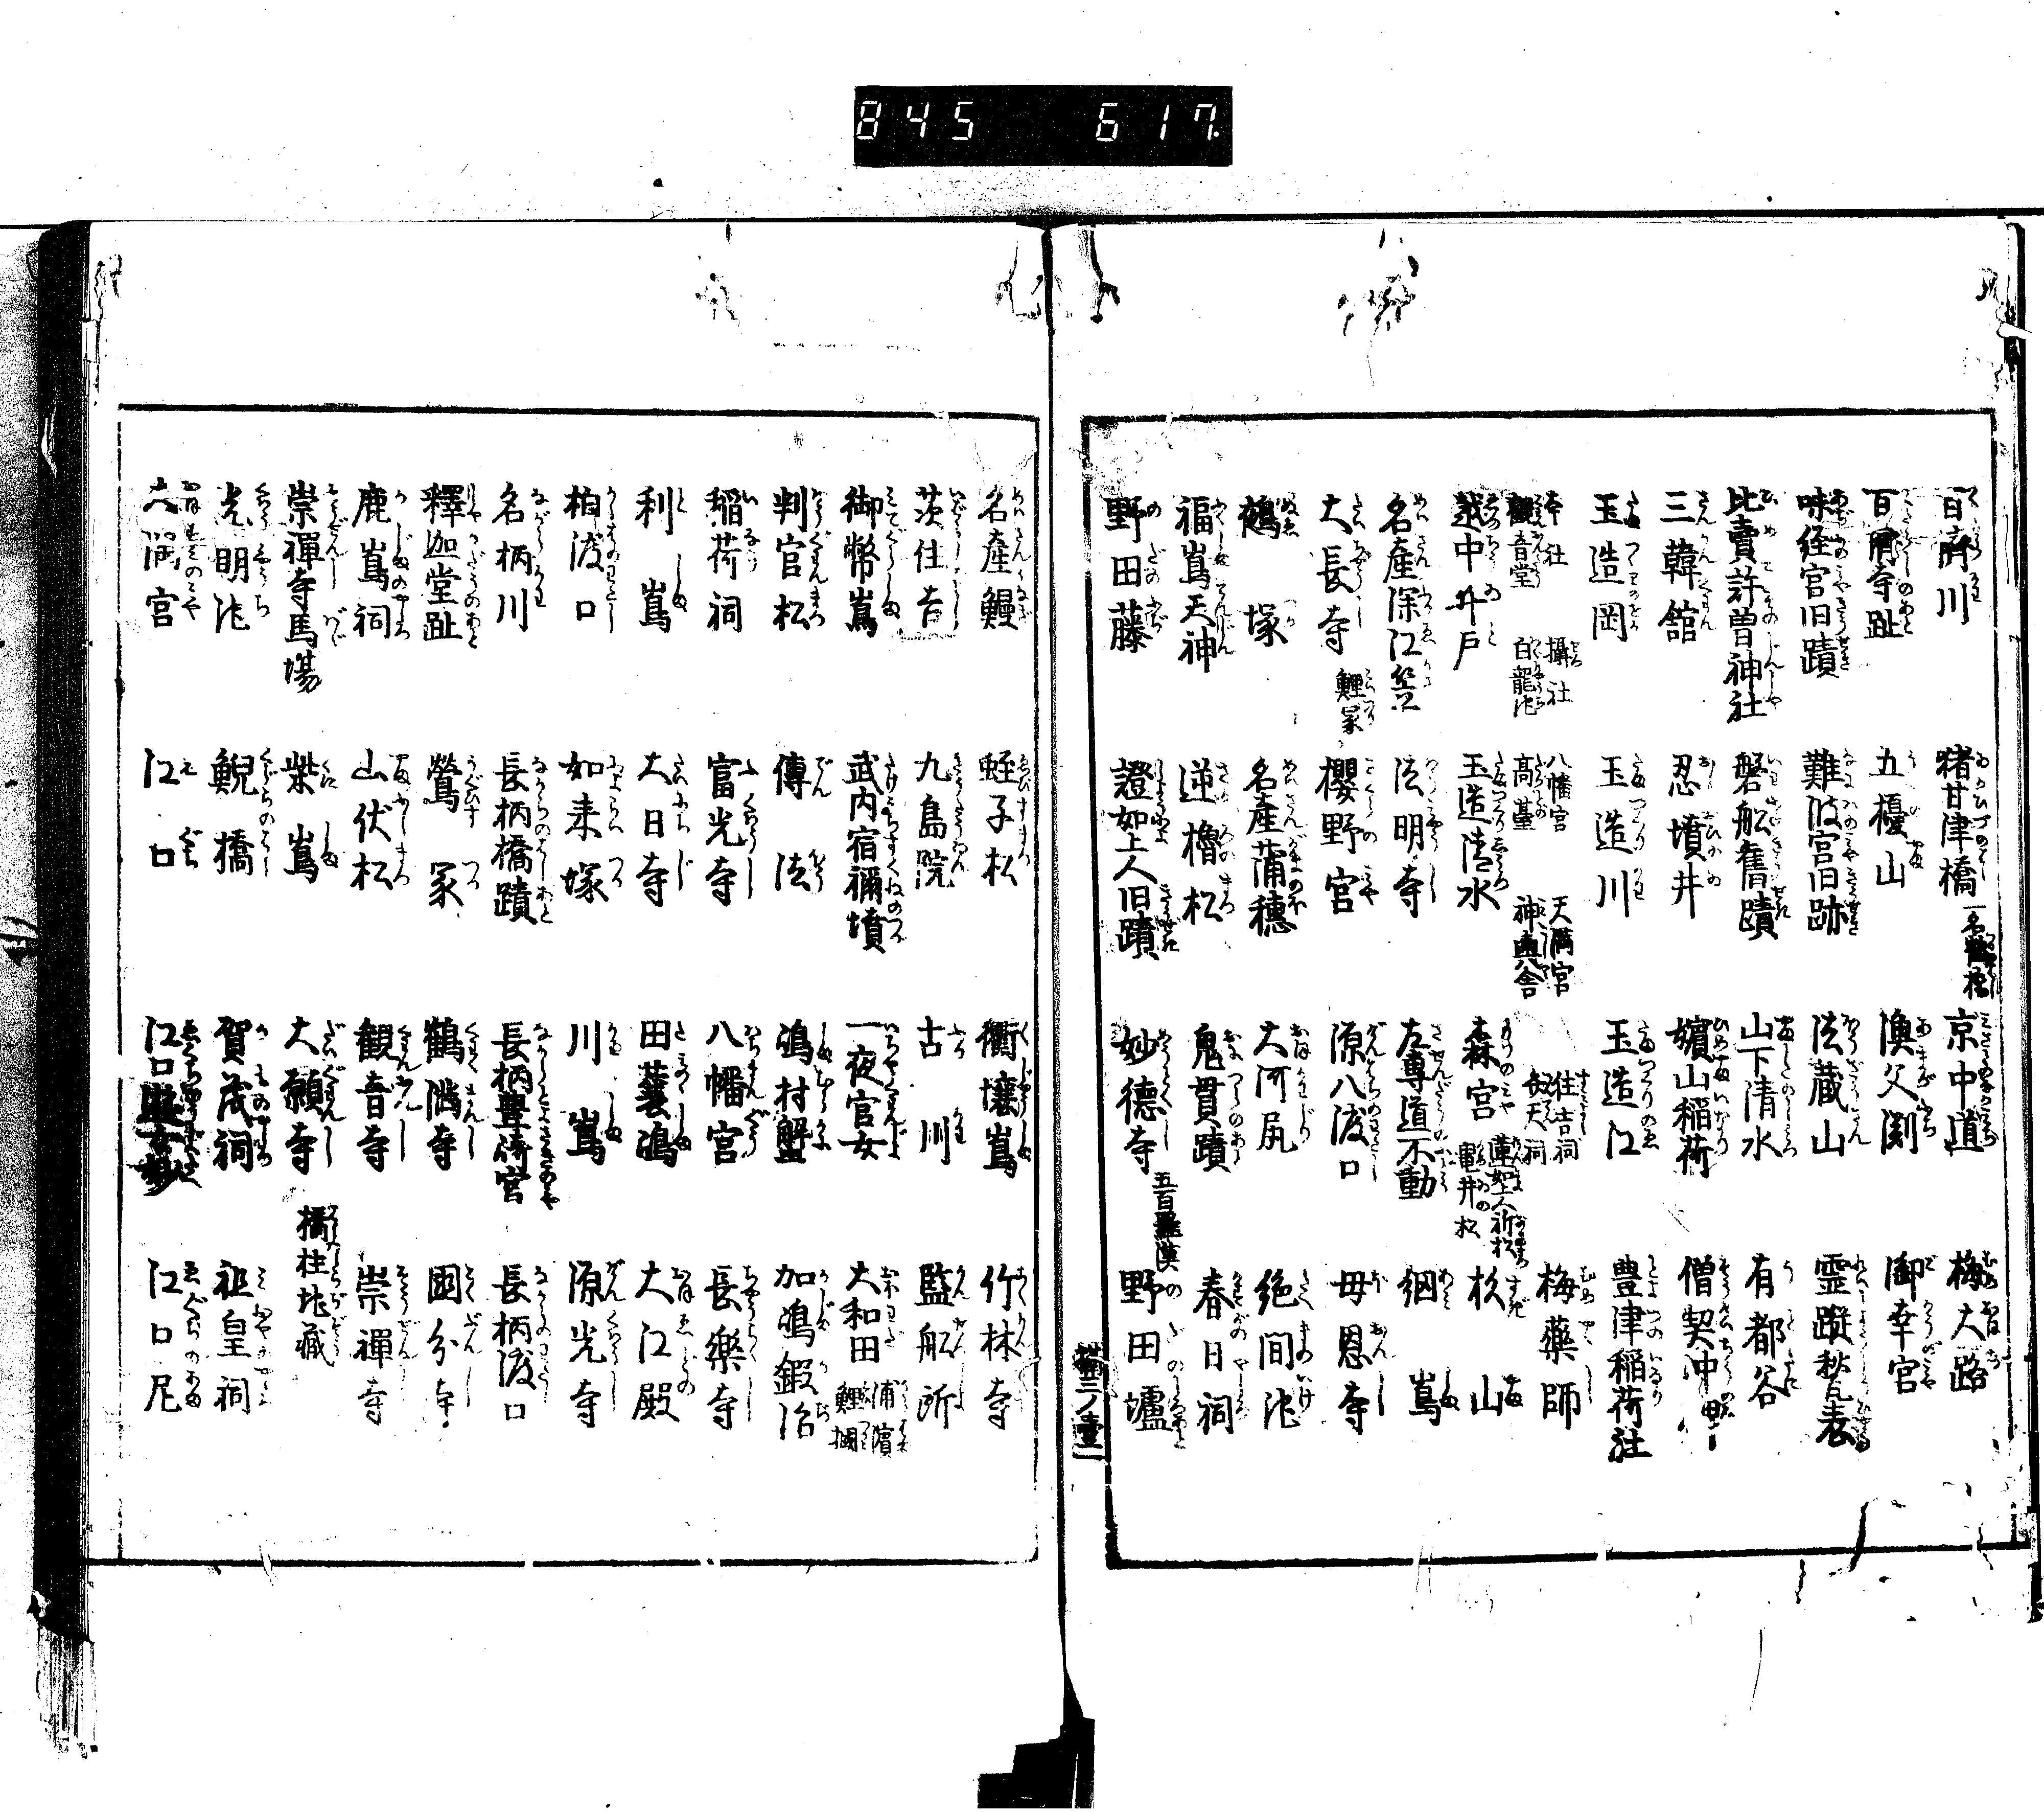 845 617
百済川 猪甘津橋 一名鶴橋 京中道 梅大路
百済寺趾 五檍山 漁父渕 御幸宮
味経宮旧蹟 難波宮旧跡 法蔵山 霊蹤秋瓦表
比賣許曽神社 磐舩舊蹟 山下清水 有都谷
三韓舘 忍墳井 嬪山稲荷 僧契冲
玉造岡 玉造川 玉造江 豊津稲荷社
本社 攝社 八幡宮 天満宮 住吉祠
観音堂 白龍池 高臺 神輿舎 弁天祠 梅薬師
越中井戸 玉造清水 森宮 蓮如上人祈松 亀井松 杉山
名産深江笠 法明寺 左専道不動 網嶌
大長寺 鯉冢 櫻野宮 源八渡口 母恩寺
鵺塚 名産蒲穂 大河尻 絶間池
福嶌天神 逆櫓松 鬼貫蹟 春日祠
野田藤 證如上人旧蹟 妙徳寺 五百羅漢 野田壚
名産鰻 蛭子松 衢壤嶌 竹林寺
茨住吉 九島院 古川 監舩所
御幣嶌 武内宿禰墳 一夜官女 大和田 浦濱 鯉掴
判官松 傳法 嶋村蟹 加嶋鍜冶
稲荷祠 富光寺 八幡宮 長樂寺
利嶌 大日寺 田蓑嶋 大江殿
柏渡口 如来塚 川嶌 源光寺
名柄川 長柄橋蹟 長柄豊崎宮 長柄渡口
釋迦堂趾 鶯冢 鶴満寺 國分寺
鹿嶌祠 山伏松 観音寺 崇禪寺
崇禪寺馬場 柴嶌 大願寺 橋柱地藏
光明池 鯢橋 賀茂祠 祖皇祠
大隅宮 江口 江口 江口尼